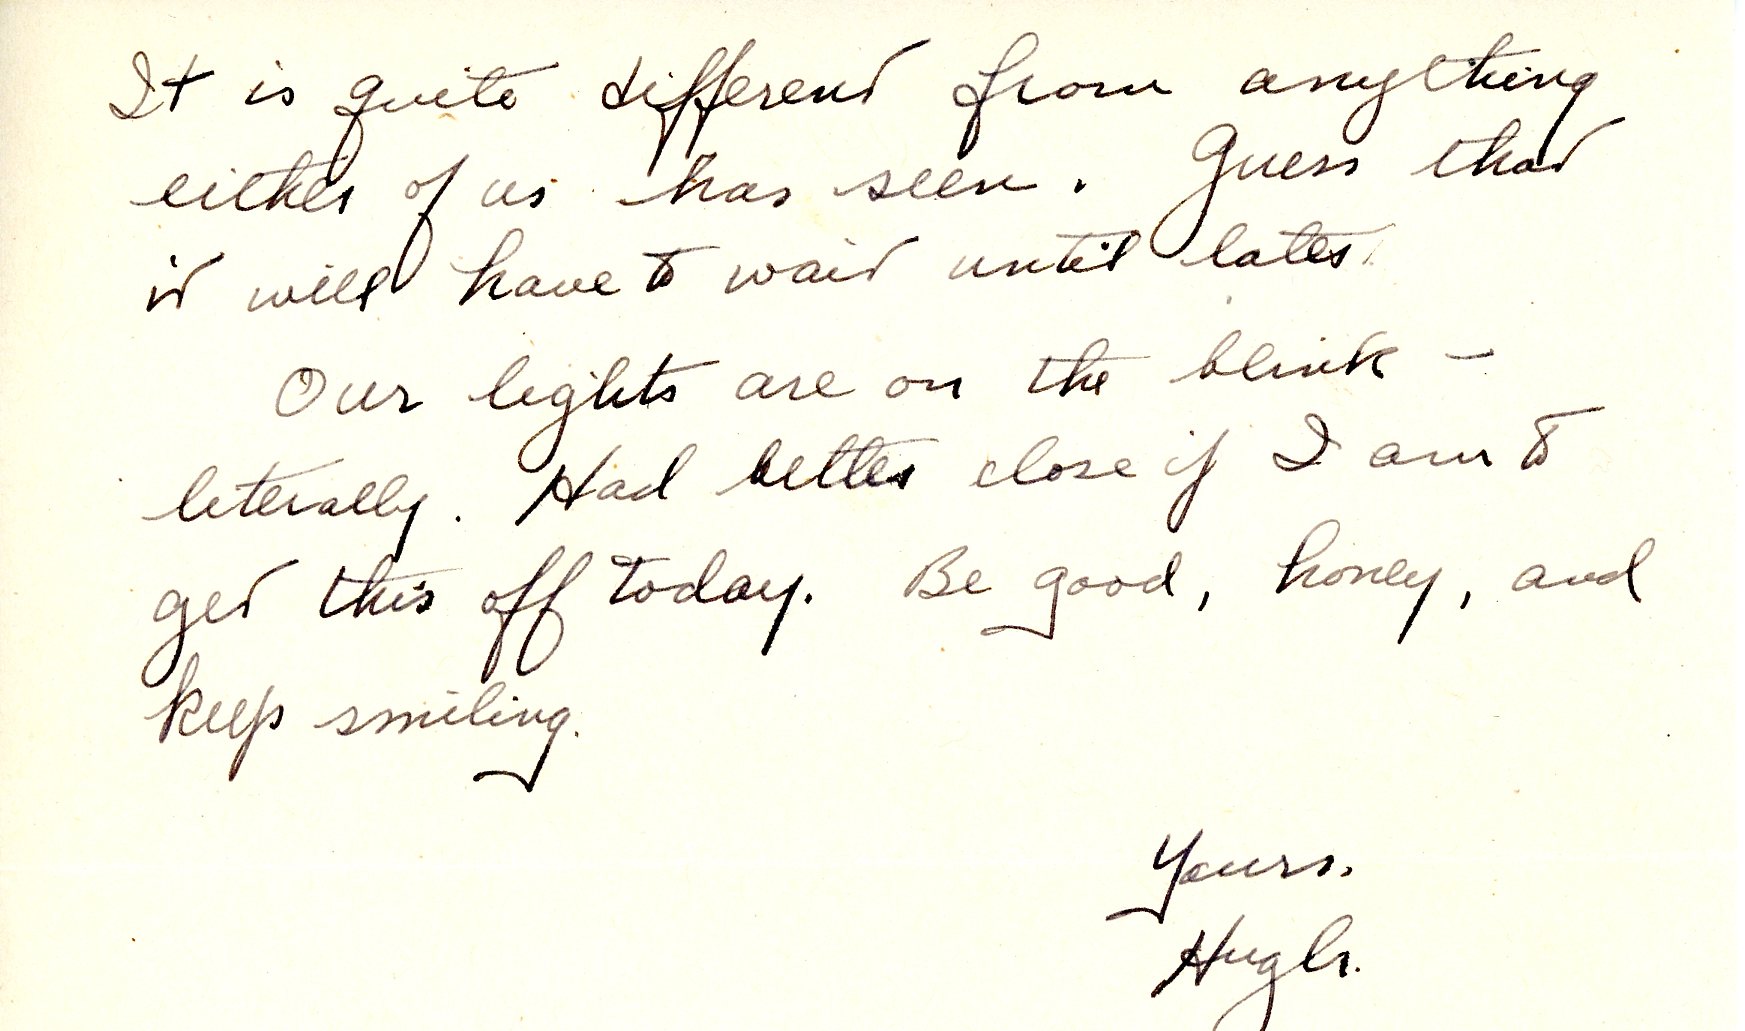 It is quite different from anything
either of us has seen. Guess that
it will have to wait until later.
Our lights are on the blink –
literally. Had better close if I am to
get this off today. Be good, honey, and
keep smiling.
Yours,
Hugh.